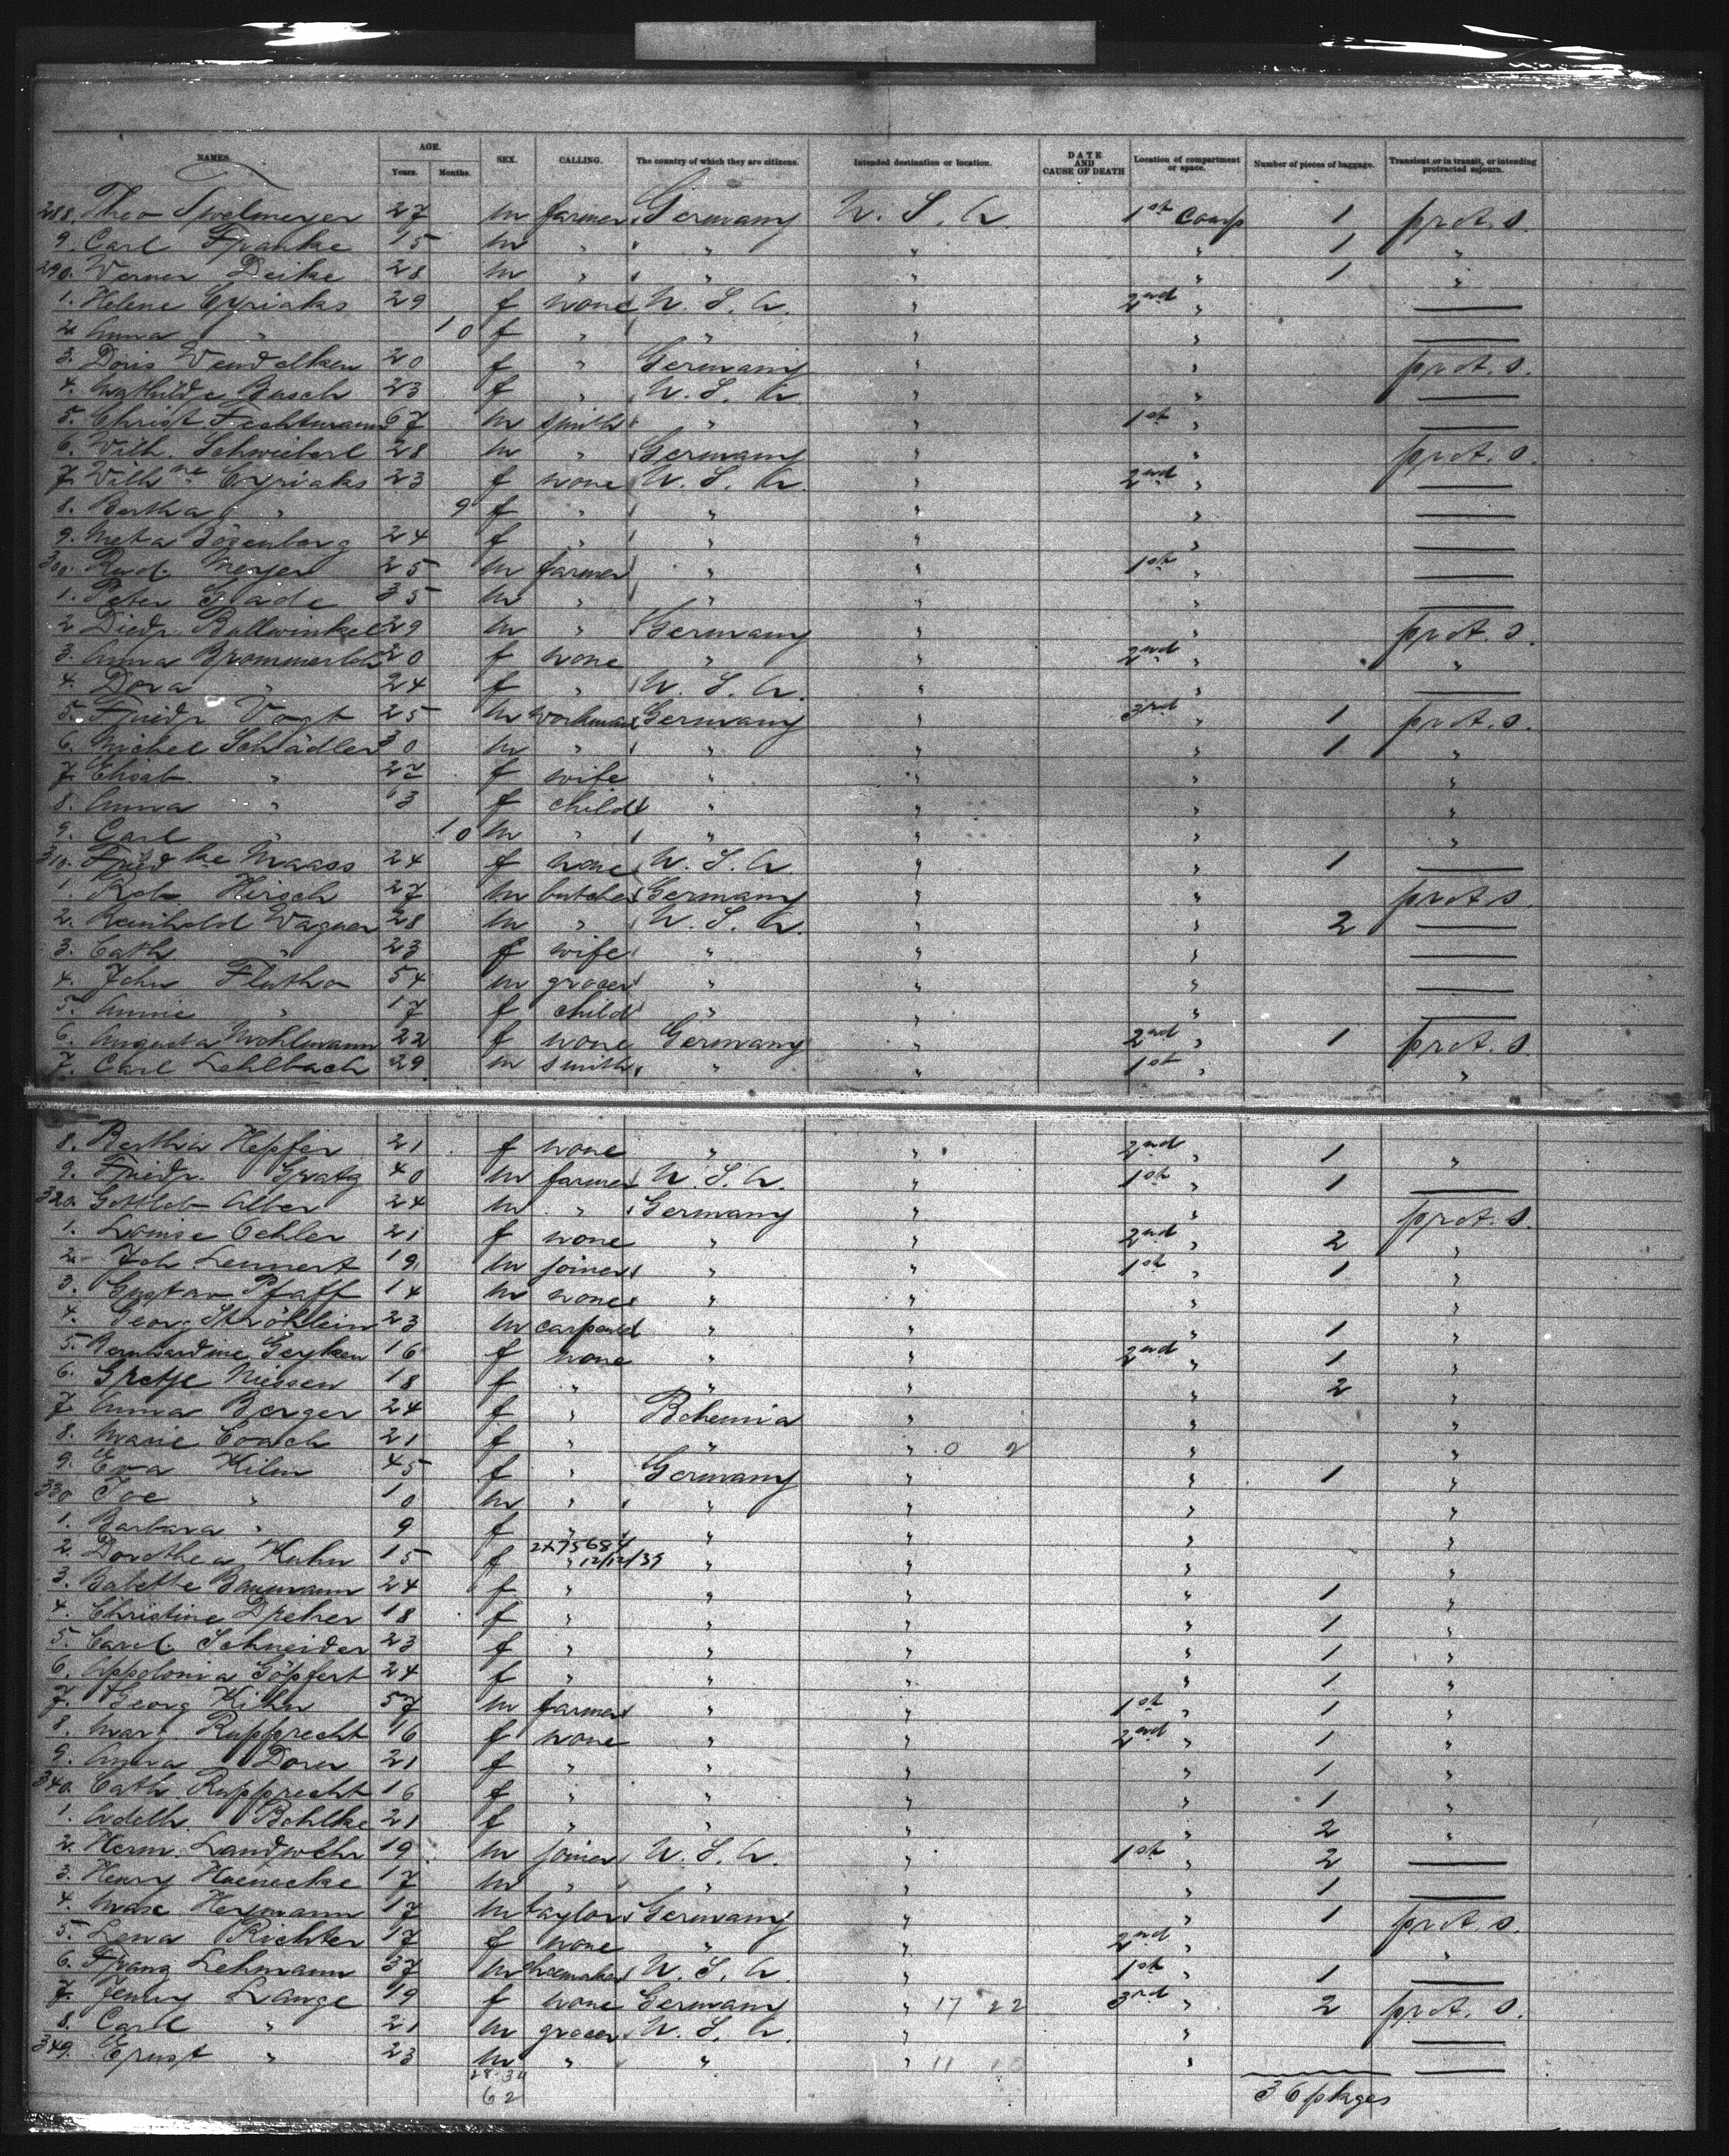 NAMES. AGE. SEX. CALLING. The country of which they are citizens. Intended destination or location. DATE AND CAUSE OF DEATH Location of compartment or space. Number of pieces of baggage. Transient or in transit, or intending protracted sojourn.
Years. Months.
288. Theo Spelmeyer 27 m farmer Germany U. S. A. 1st Comp 1 prot. s.
9. Carl Franke 15 m " " " " 1 "
290. Werner Deike 28 m " " " " 1 "
1. Helene Cyriaks 29 f none U. S. A. " 2nd " —
2. Anna " 10 f " " " " —
3. Doris Wendelken 20 f " Germany " " prot. s.
4. Mathilde Busch 23 f " U. S. A. " " —
5. Christ Fechtmann 67 m smith " " 1st " —
6. Wilh. Schwiebert 28 m " Germany " " prot. s.
7. Wilhne Cyriaks 23 f none U. S. A. " 2nd " —
8. Bertha " 9 f " " " " —
9. Meta 24 f " " " " —
300. Rud. Meyer 25 m farmer " " 1st " —
1. Peter Gade 35 m " " " " —
2 Diedr. Ballwinkel 29 m " Germany " " prot. s.
3. Anna Brommerloh 20 f none " " 2nd " "
4. Dora " 24 f " U. S. A. " " —
5. Friedr Vogt 25 m workman Germany " 3rd " 1 prot. s.
6. Michel Schädler 30 m " " " " 1 "
7. Elisab " 27 f wife " " " "
8. Anna " 3 f child " " " "
9. Carl " 10 m " " " " "
310. Friedke Maass 24 f none U. S. A. " " 1 —
1. Rob Hirsch 27 m butcher Germany " " prot s.
2. Reinhold Wagner 28 m " U. S. A. " " 2 —
3. Cath " 23 f wife " " " —
4. John Flutho 54 m grocer " " " —
5. Annie " 17 f child " " " —
6. Augusta Mohlmann 22 f none Germany " 2nd " 1 prot. s.
7. Carl Lehlbach 29 m smith " " 1st " "
8. Bertha Hepfer 21 f none " " 2nd " 1 "
9. Friedr. Gratz 40 m farmer U. S. A. " 1st " 1 —
320. Gottlob Alber 24 m " Germany " " prot. s.
1. Louise Oehler 21 f none " " 2nd " 2 "
2. Joh Lennert 19 m joiner " " 1st " 1 "
3. Gustav Pfaff 14 m none " " " "
4. Georg Ströhlein 23 m " " " 1 "
5. Bernhardine Geyken 16 f none " " 2nd " 1 "
6. Gretje Niessen 18 f " " " " 2 "
7. Anna Berger 24 f " Bohemia " " "
8. Marie Coach 21 f " " " 0 2 " "
9. Eva Kilm 45 f " Germany " " 1 "
330 Joe " 10 m " " " " "
1. Barbara " 9 f " " " " "
2x75684
2. Dorothea Kuhn 15 f " 12/12/39 " " " "
3. Babette Baumann 24 f " " " " 1 "
4. Christine Dreher 18 f " " " " 1 "
5. Carol. Schneider 23 f " " " " 1 "
6. Appolonia Göpfert 24 f " " " " 1 "
7. Georg Kihn 57 m farmer " " 1st " 1 "
8. Marg. Rupprecht 16 f none " " 2nd " 1 "
9. Anna Dorn 21 f " " " " 1 "
340. Cath. Rupprecht 16 f " " " " 1 "
1. Adelh. Bohlke 21 f " " " " 2 "
2. Herm. Landwehr 19 m joiner U. S. A. " 1st " 2 —
3. Henry Haenecke 17 m " " " " 1 —
4. Max Heymann 17 m taylor Germany " " 1 prot. s.
5. Lena Richter 17 f none " " 2nd " "
6. Franz Lehmann 37 m shoemaker U. S. A. " 1st " 1 —
7. Jenny Lange 19 f none Germany " 17 22 3rd " 2 prot. s.
8. Carl " 21 m grocer U. S. A. " " —
349. Ernst " 23 m " " " 11 " —
28 34
62 36 pkges